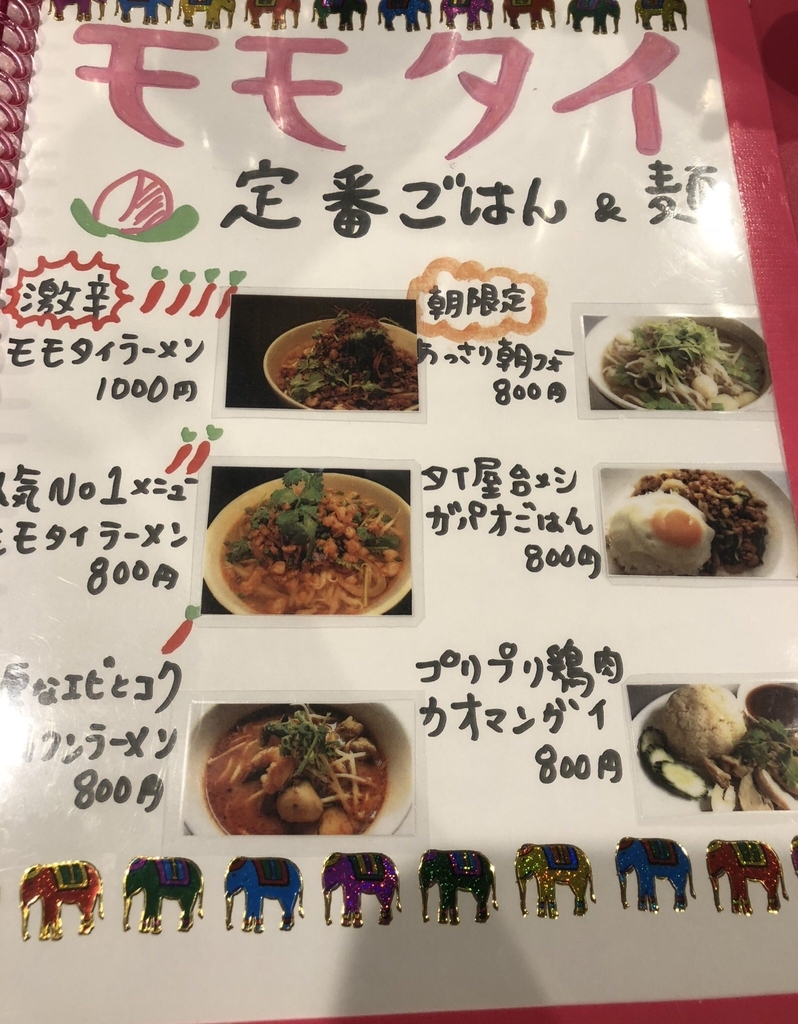 モモタイ
定番ごはん & 麺
激辛
モモタイラーメン
1000円
朝限定
あっさり朝フォー
800円
気No1メニュー
モモタイラーメン
800円
タイ屋台メシ
ガパオごはん
800円
なエビとコク
ラーメン
800円
プリプリ鶏肉
カオマンガイ
800円